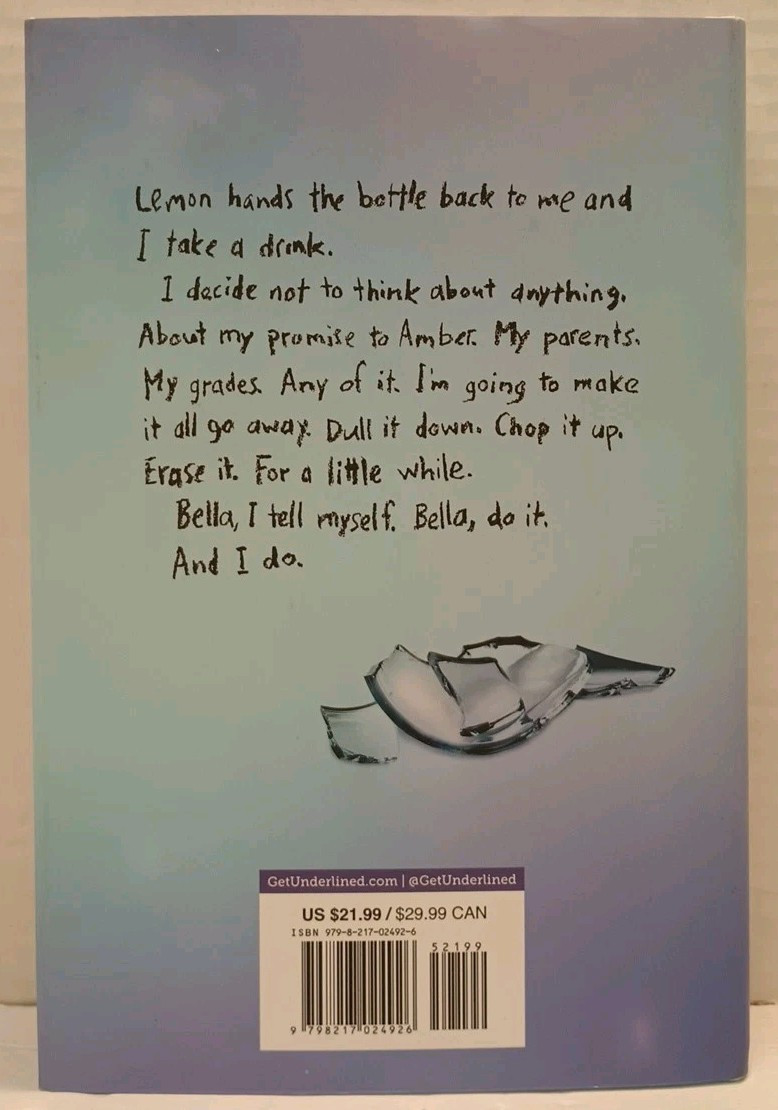 Lemon hands the bottle back to me and
I take a drink.
I decide not to think about anything.
About my promise to Amber. My parents.
My grades. Any of it. I'm going to make
it all go away. Dull it down. Chop it up.
Erase it. For a little while.
Bella, I tell myself. Bella, do it.
And I do.
GetUnderlined.com | @GetUnderlined
US $21.99 / $29.99 CAN
ISBN 979-8-217-02492-6
52199
9 798217 024926